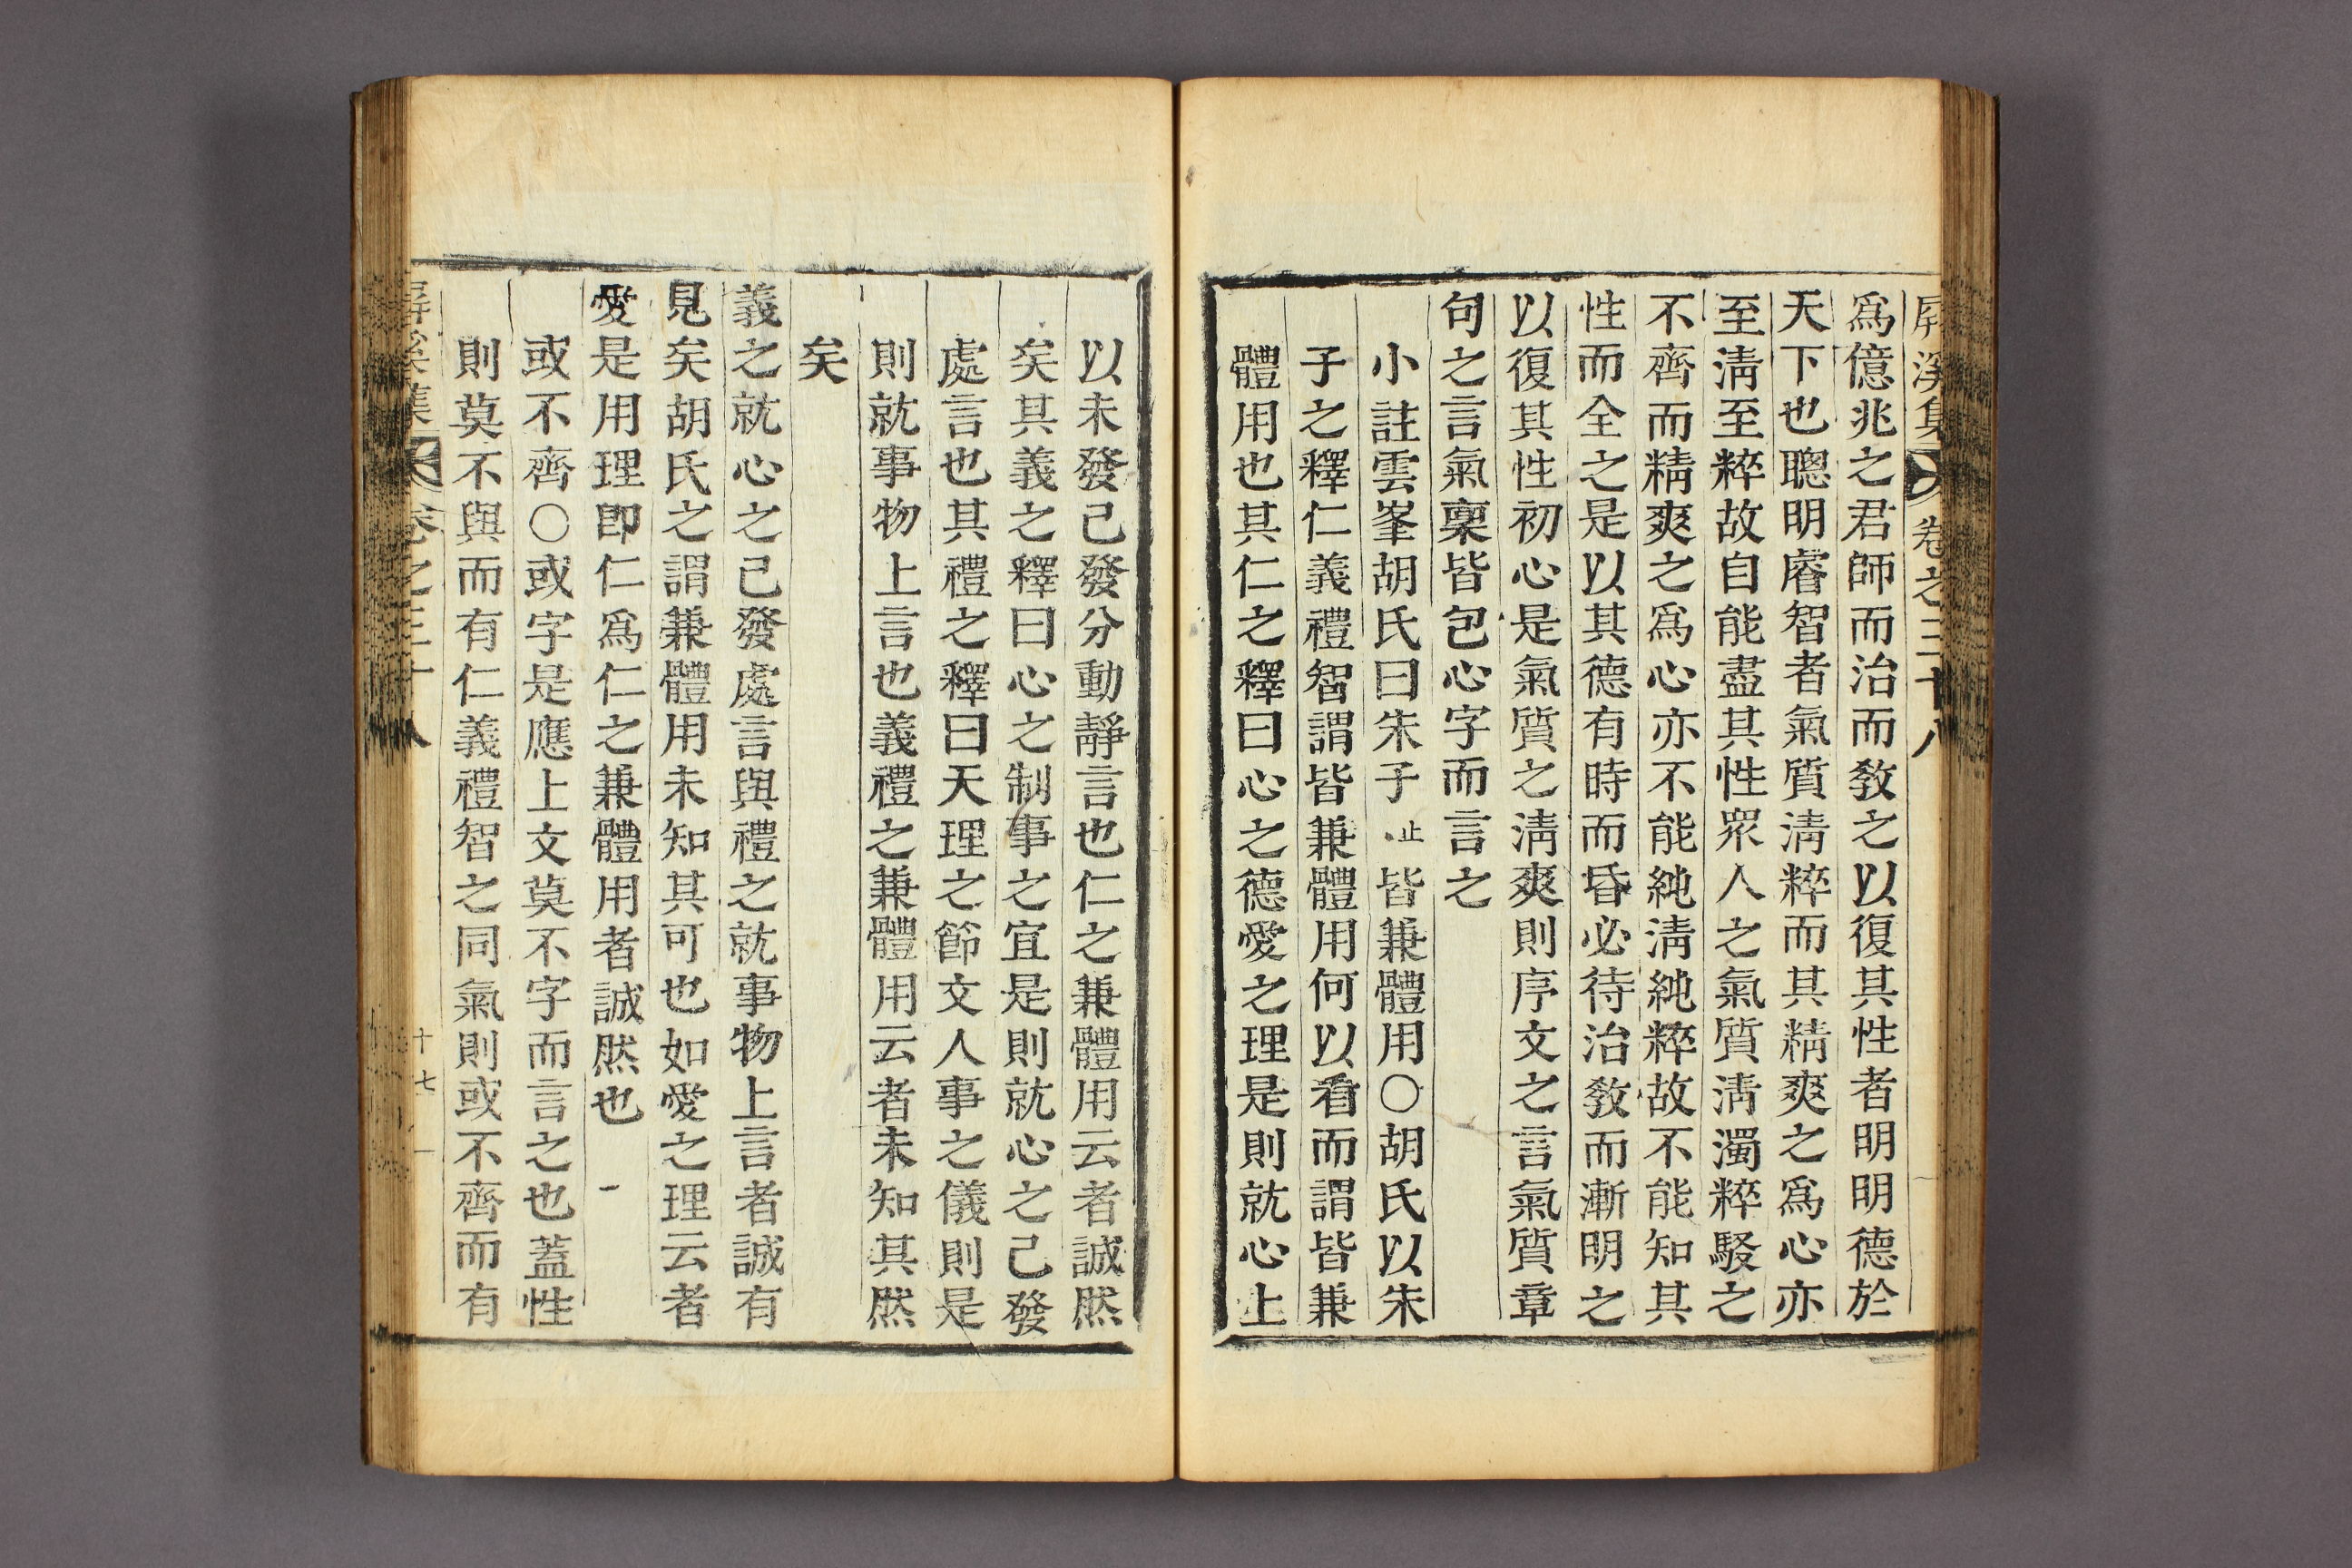 屛溪集 卷之三十八
爲億兆之君師而治而敎之以復其性者明明德於
天下也聰明睿智者氣質淸粹而其精爽之爲心亦
至淸至粹故自能盡其性衆人之氣質淸濁粹駁之
不齊而精爽之爲心亦不能純淸純粹故不能知其
性而全之是以其德有時而昏必待治敎而漸明之
以復其性初心是氣質之淸爽則序文之言氣質章
句之言氣稟皆包心字而言之
小註雲峯胡氏曰朱子止皆兼體用○胡氏以朱
子之釋仁義禮智謂皆兼體用何以看而謂皆兼
體用也其仁之釋曰心之德愛之理是則就心上
以未發已發分動靜言也仁之兼體用云者誠然
矣其義之釋曰心之制事之宜是則就心之已發
處言也其禮之釋曰天理之節文人事之儀則是
則就事物上言也義禮之兼體用云者未知其然
矣
義之就心之已發處言與禮之就事物上言者誠有
見矣胡氏之謂兼體用未知其可也如愛之理云者
愛是用理卽仁爲仁之兼體用者誠然也
或不齊○或字是應上文莫不字而言之也蓋性
則莫不與而有仁義禮智之同氣則或不齊而有
屛溪集 卷之三十八 十七